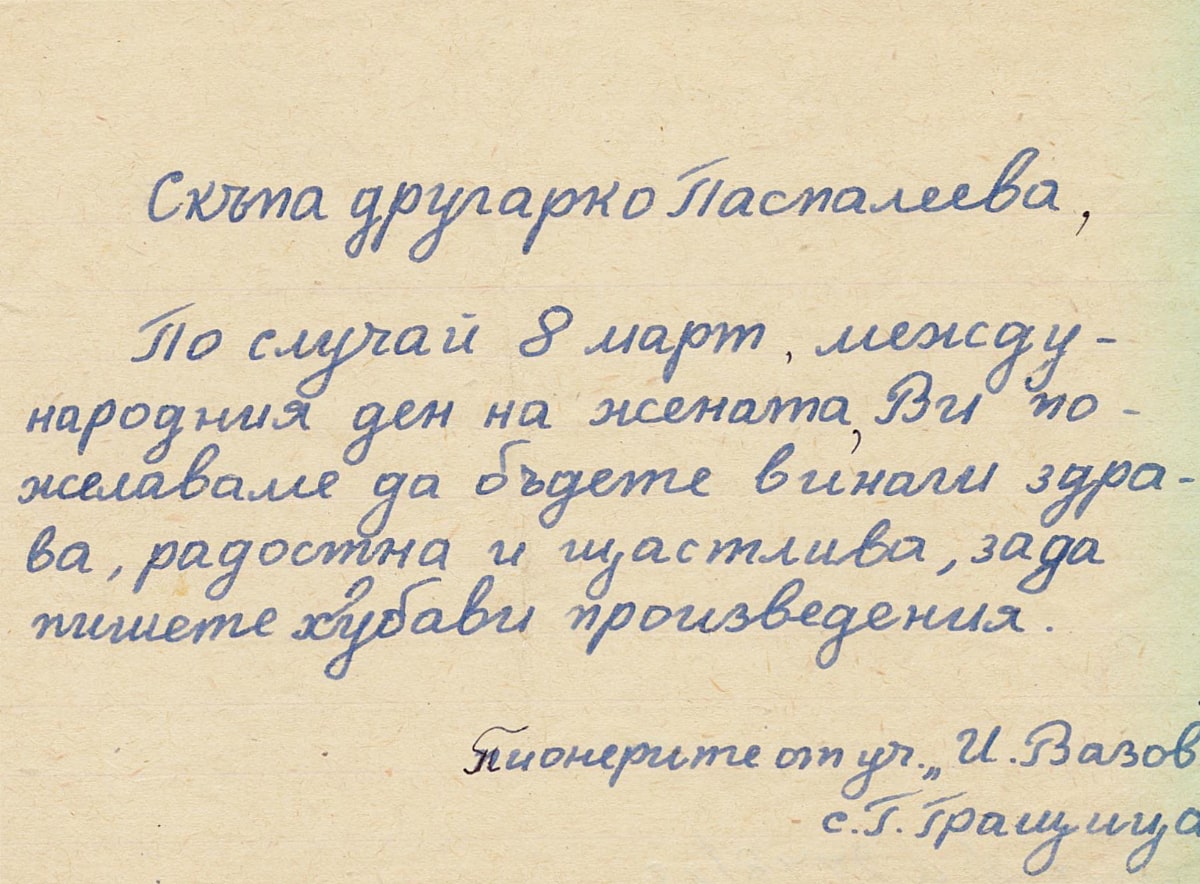 Скъпа другарко Паспалеева,
По случай 8 март, между-
народния ден на жената, Ви по-
желаваме да бъдете винаги здра-
ва, радостна и щастлива, зада
пишете хубави произведения.
Пионерите от уч. „И. Вазов
с. Г. Гращица